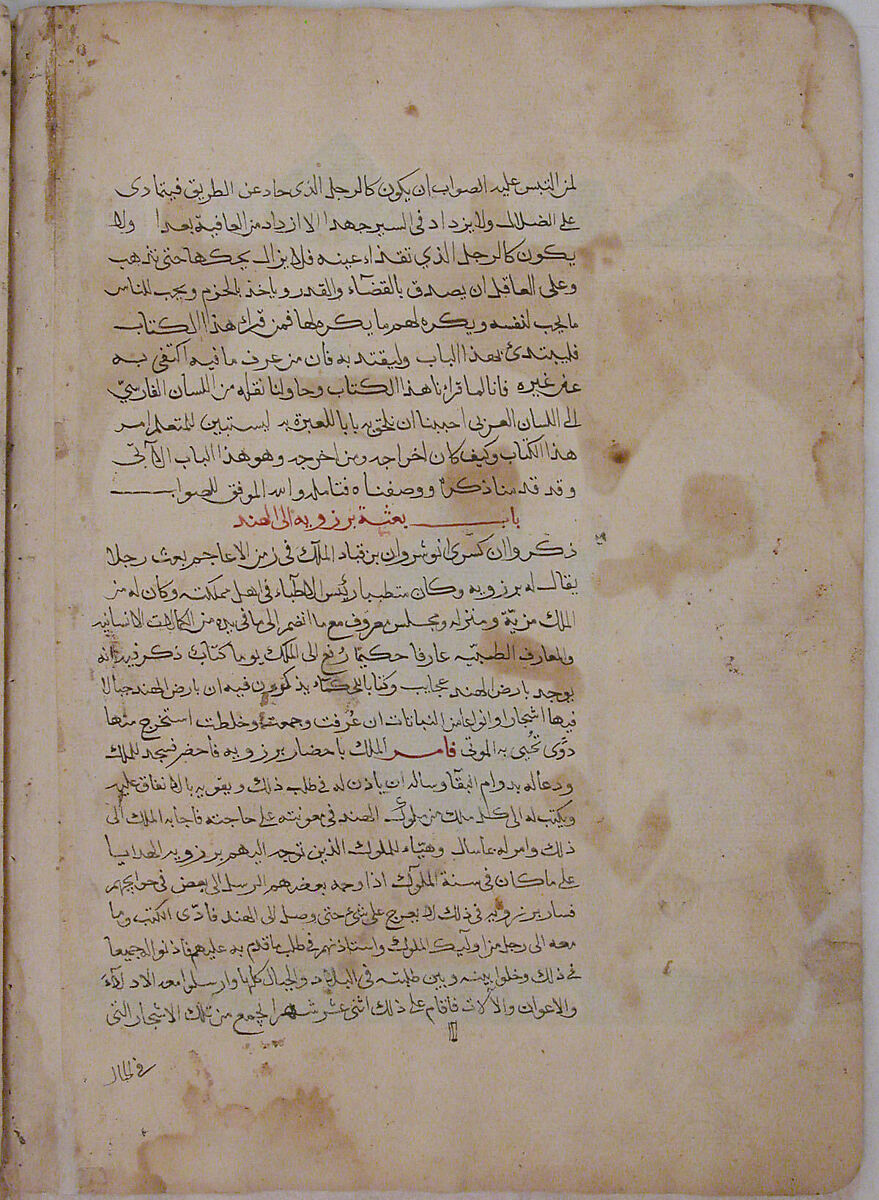 لمن التبس عليه الصواب ان يكون كالرجل الذى حاد عن الطريق فيتمادى
على الضلال ولا يزداد فى السير جهدا الا ازداد من العافية بعدا ولا
يكون كالرجل الذي تقذاء عينه فلا يزال يحكها حتى تذهب
وعلى العاقل ان يصدق بالقضآء والقدر وياخذ بالحزم ويحب للناس
ما يحب لنفسه ويكره لهم ما يكره لها فمن قراء هذا الكتاب
فليبتدئ بهذا الباب وليقتد به فان من عرف ما فيه اكتفى به
عن غيره فانا لما قراءنا هذا الكتاب وحاولنا نقله من اللسان الفارسىّ
الى اللسان العربى احببنا ان نلحق به بابا للعبرة به ليستبين للمتعلم امر
هذا الكتاب وكيف كان اخراجه ومن اخرجه وهو هذا الباب الآتى
وقد قدمنا ذكره ووصفناه فتامله والله الموفق للصواب
باب بعثة برزويه الى الهند
ذكروا ان كسرى انوشروان بن قباد الملك فى زمن الاعاجم بعث رجلا
يقال له برزويه وكان متطببا رئيس الاطباء فى اهل مملكته وكان له من
الملك مزيّة ومنزلة ومجلس معروف مع ما انضم الى ما فى يده من الكمالات الانسانيه
والمعارف الطبيّه عارفا حكيما رفع الى الملك يوما كتاب ذكر فيه انه
يوجد بارض الهند عجايب وكتابا للحكماء يذكرون فيه ان بارض الهند جبالا
فيها اشجار او انواعا من النباتات ان عُرفت وجمعت وخلطت استخرج منها
دوًى تُحيى به الموتى فامر الملك باحضار برزويه فاحضر فسجد للملك
ودعا له بدوام البقا وساله ان ياذن له فى طلب ذلك ويقويه بالانفاق عليه
ويكتب له الى كل ملك من ملوك الهند فى معونته على حاجته فاجابه الملك الى
ذلك وامر له بما سال وهيّاء للملوك الذين توجه اليهم برزويه الهدايا
على ما كان فى سنة الملوك اذا وجه بعضهم الرسل الى بعض فى حوايجهم
فسار برزويه فى ذلك لا يعرج على شئ حتى وصل الى الهند فادّى الكتب وما
معه الى رجل من اوليك الملوك واستاذنهم فى طلب ما قدم به عليهم فاذنوا له جميعا
فى ذلك وخلوا بينه وبين طلبته فى البلاد والجبال كلها وارسلوا معه الادلآء
والاعوان والآلات فاقام على ذلك اثنى عشر شهرا لجمع من تلك الاشجار التى
فى الجبال